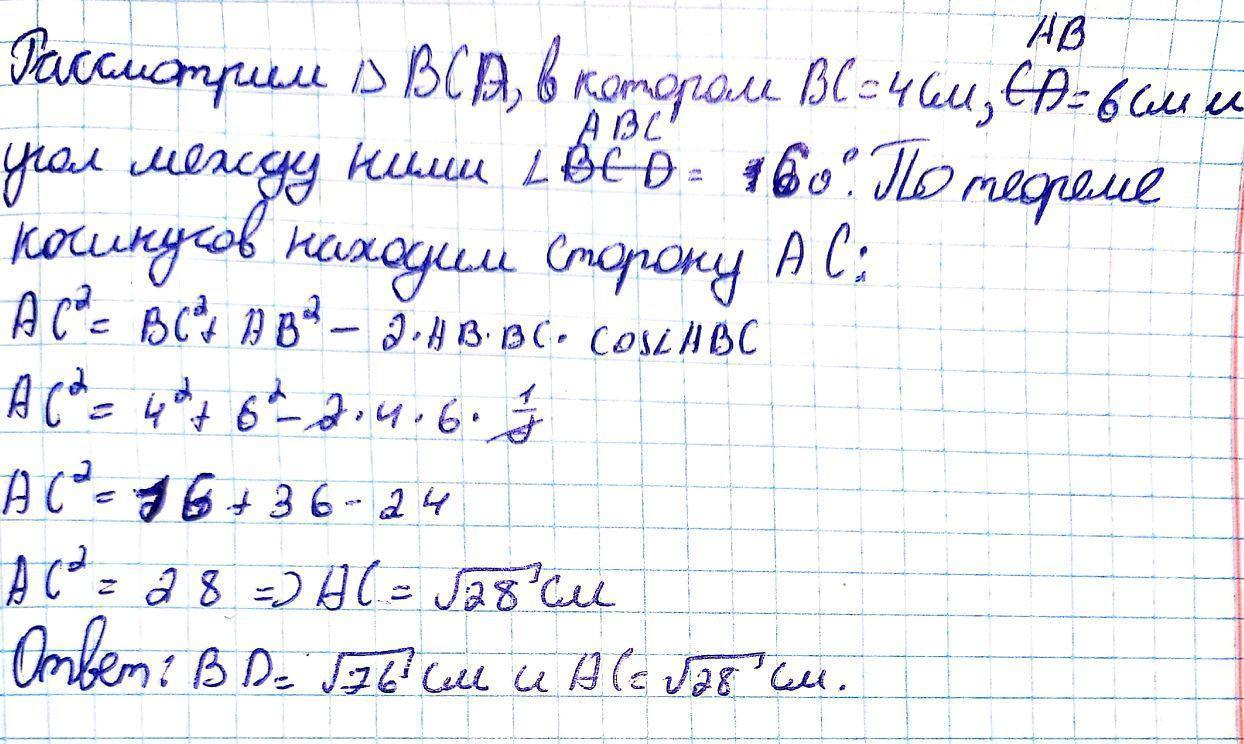 AB
Рассмотрим △ BCA, в котором BC = 4 см, CD = 6 см и
ABC
угол между ними ∠ BCD = 60°. По теореме
косинусов находим сторону AC:
AC² = BC² + AB² - 2·AB·BC·cos∠ABC
AC² = 4² + 6² - 2·4·6·1/2
AC² = 16 + 36 - 24
AC² = 28 => AC = √28 см
Ответ: BD = √76 см и AC = √28 см.